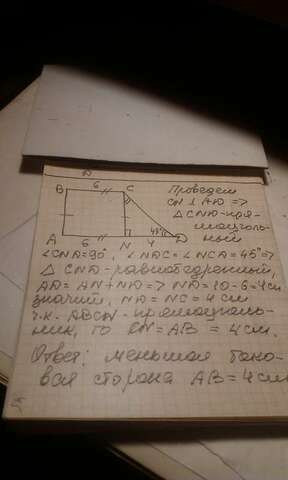 B 6 C
A 6 N 4 D
45°
Проведем
CN ⊥ AD =>
△ CND - пря-
моуголь-
ный
∠CND = 90°, ∠NDC = ∠NCD = 45° =>
△ CND - равнобедренный,
AD = AN + ND => ND = 10 - 6 = 4 см
значит, ND = NC = 4 см
т.к. ABCN - прямоуголь-
ник, то CN = AB = 4 см.
Ответ: меньшая боко-
вая сторона AB = 4 см